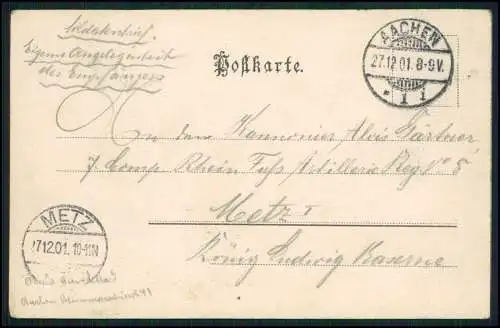 Soldatenbrief.
Eigene Angelegenheit
des Empfängers
Postkarte.
AACHEN
27.12.01. 8-9V.
* 1 1
An den Kannonier Alois Gärtner
7 Comp Rhein Fuss Artillerie Reg. N° 8
Metz I
König Ludwig Kaserne
METZ
27.12.01. 10-11N
Aachen